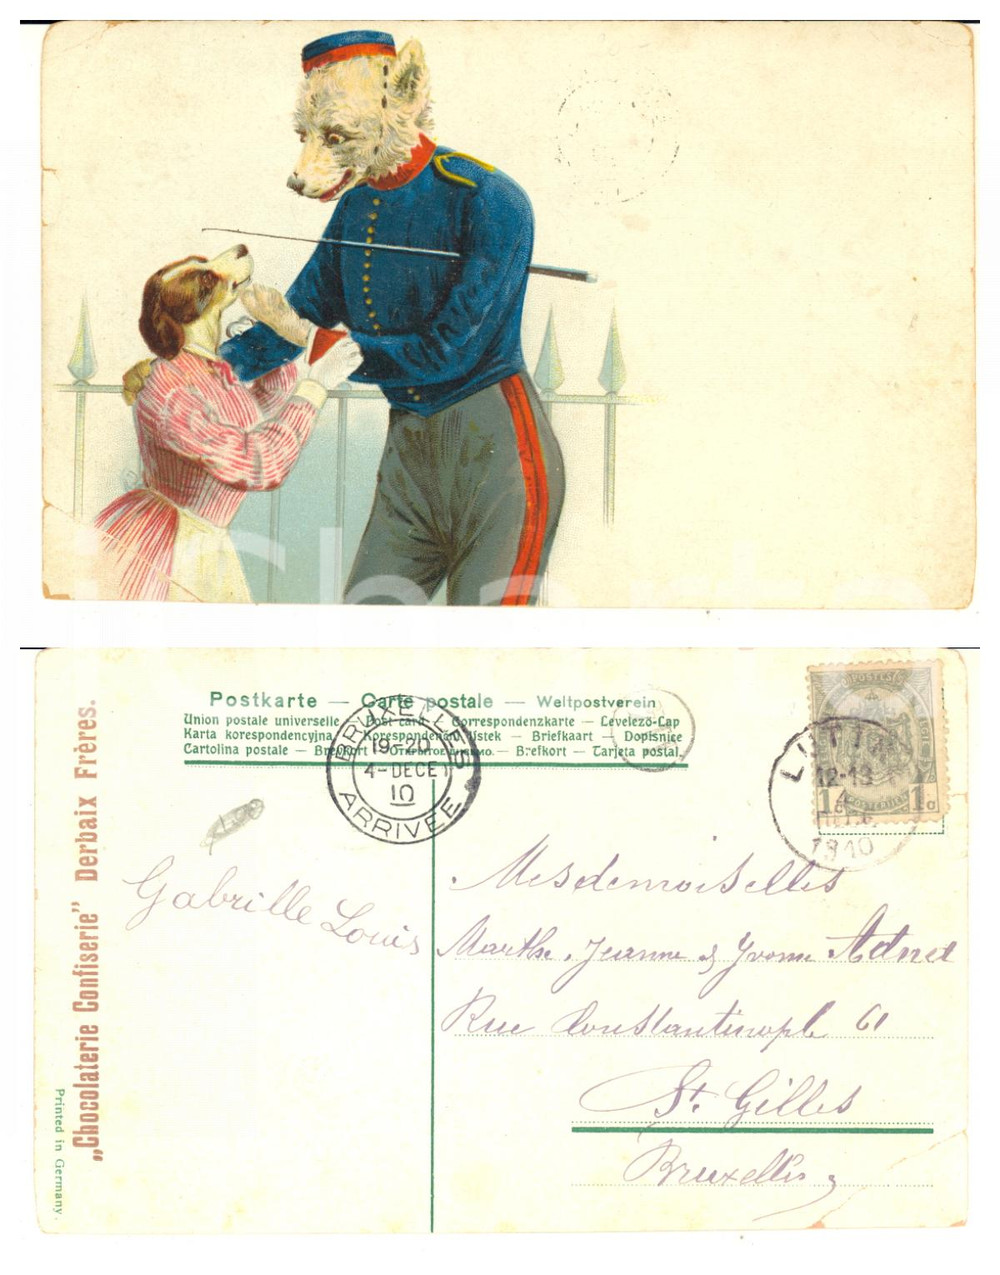 Postkarte — Carte postale — Weltpostverein
Union postale universelle — Post card — Correspondenzkarte — Levelező-Lap
Karta korespondencyjna — Korespondenční lístek — Briefkaart — Dopisnice
Cartolina postale — Brefkort — — Brefkort — Tarjeta postal
BRUXELLES
19-20
4-DECE
10
ARRIVEE
12-13
1910
POSTERIJEN
1c 1c
„Chocolaterie Confiserie” Derbaix Frères.
Printed in Germany.
Gabrille Louis
Mesdemoiselles
Marthe, Jeanne & Yvonne Adnet
Rue Constantinople 61
St. Gilles
Bruxelles